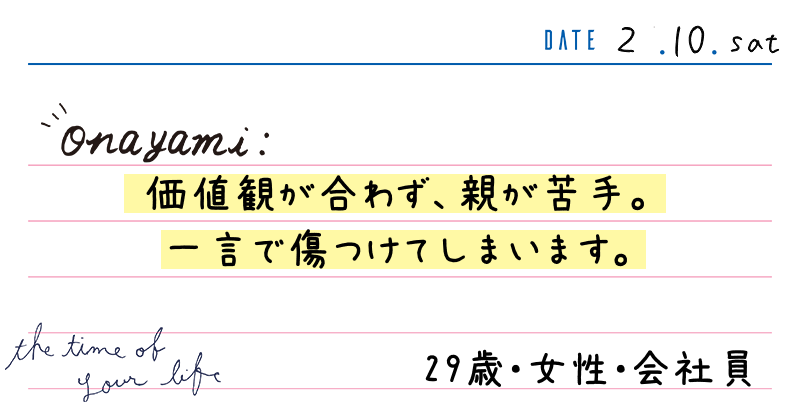 DATE 2.10.sat
Onayami:
価値観が合わず、親が苦手。
一言で傷つけてしまいます。
the time of
your life
29歳・女性・会社員